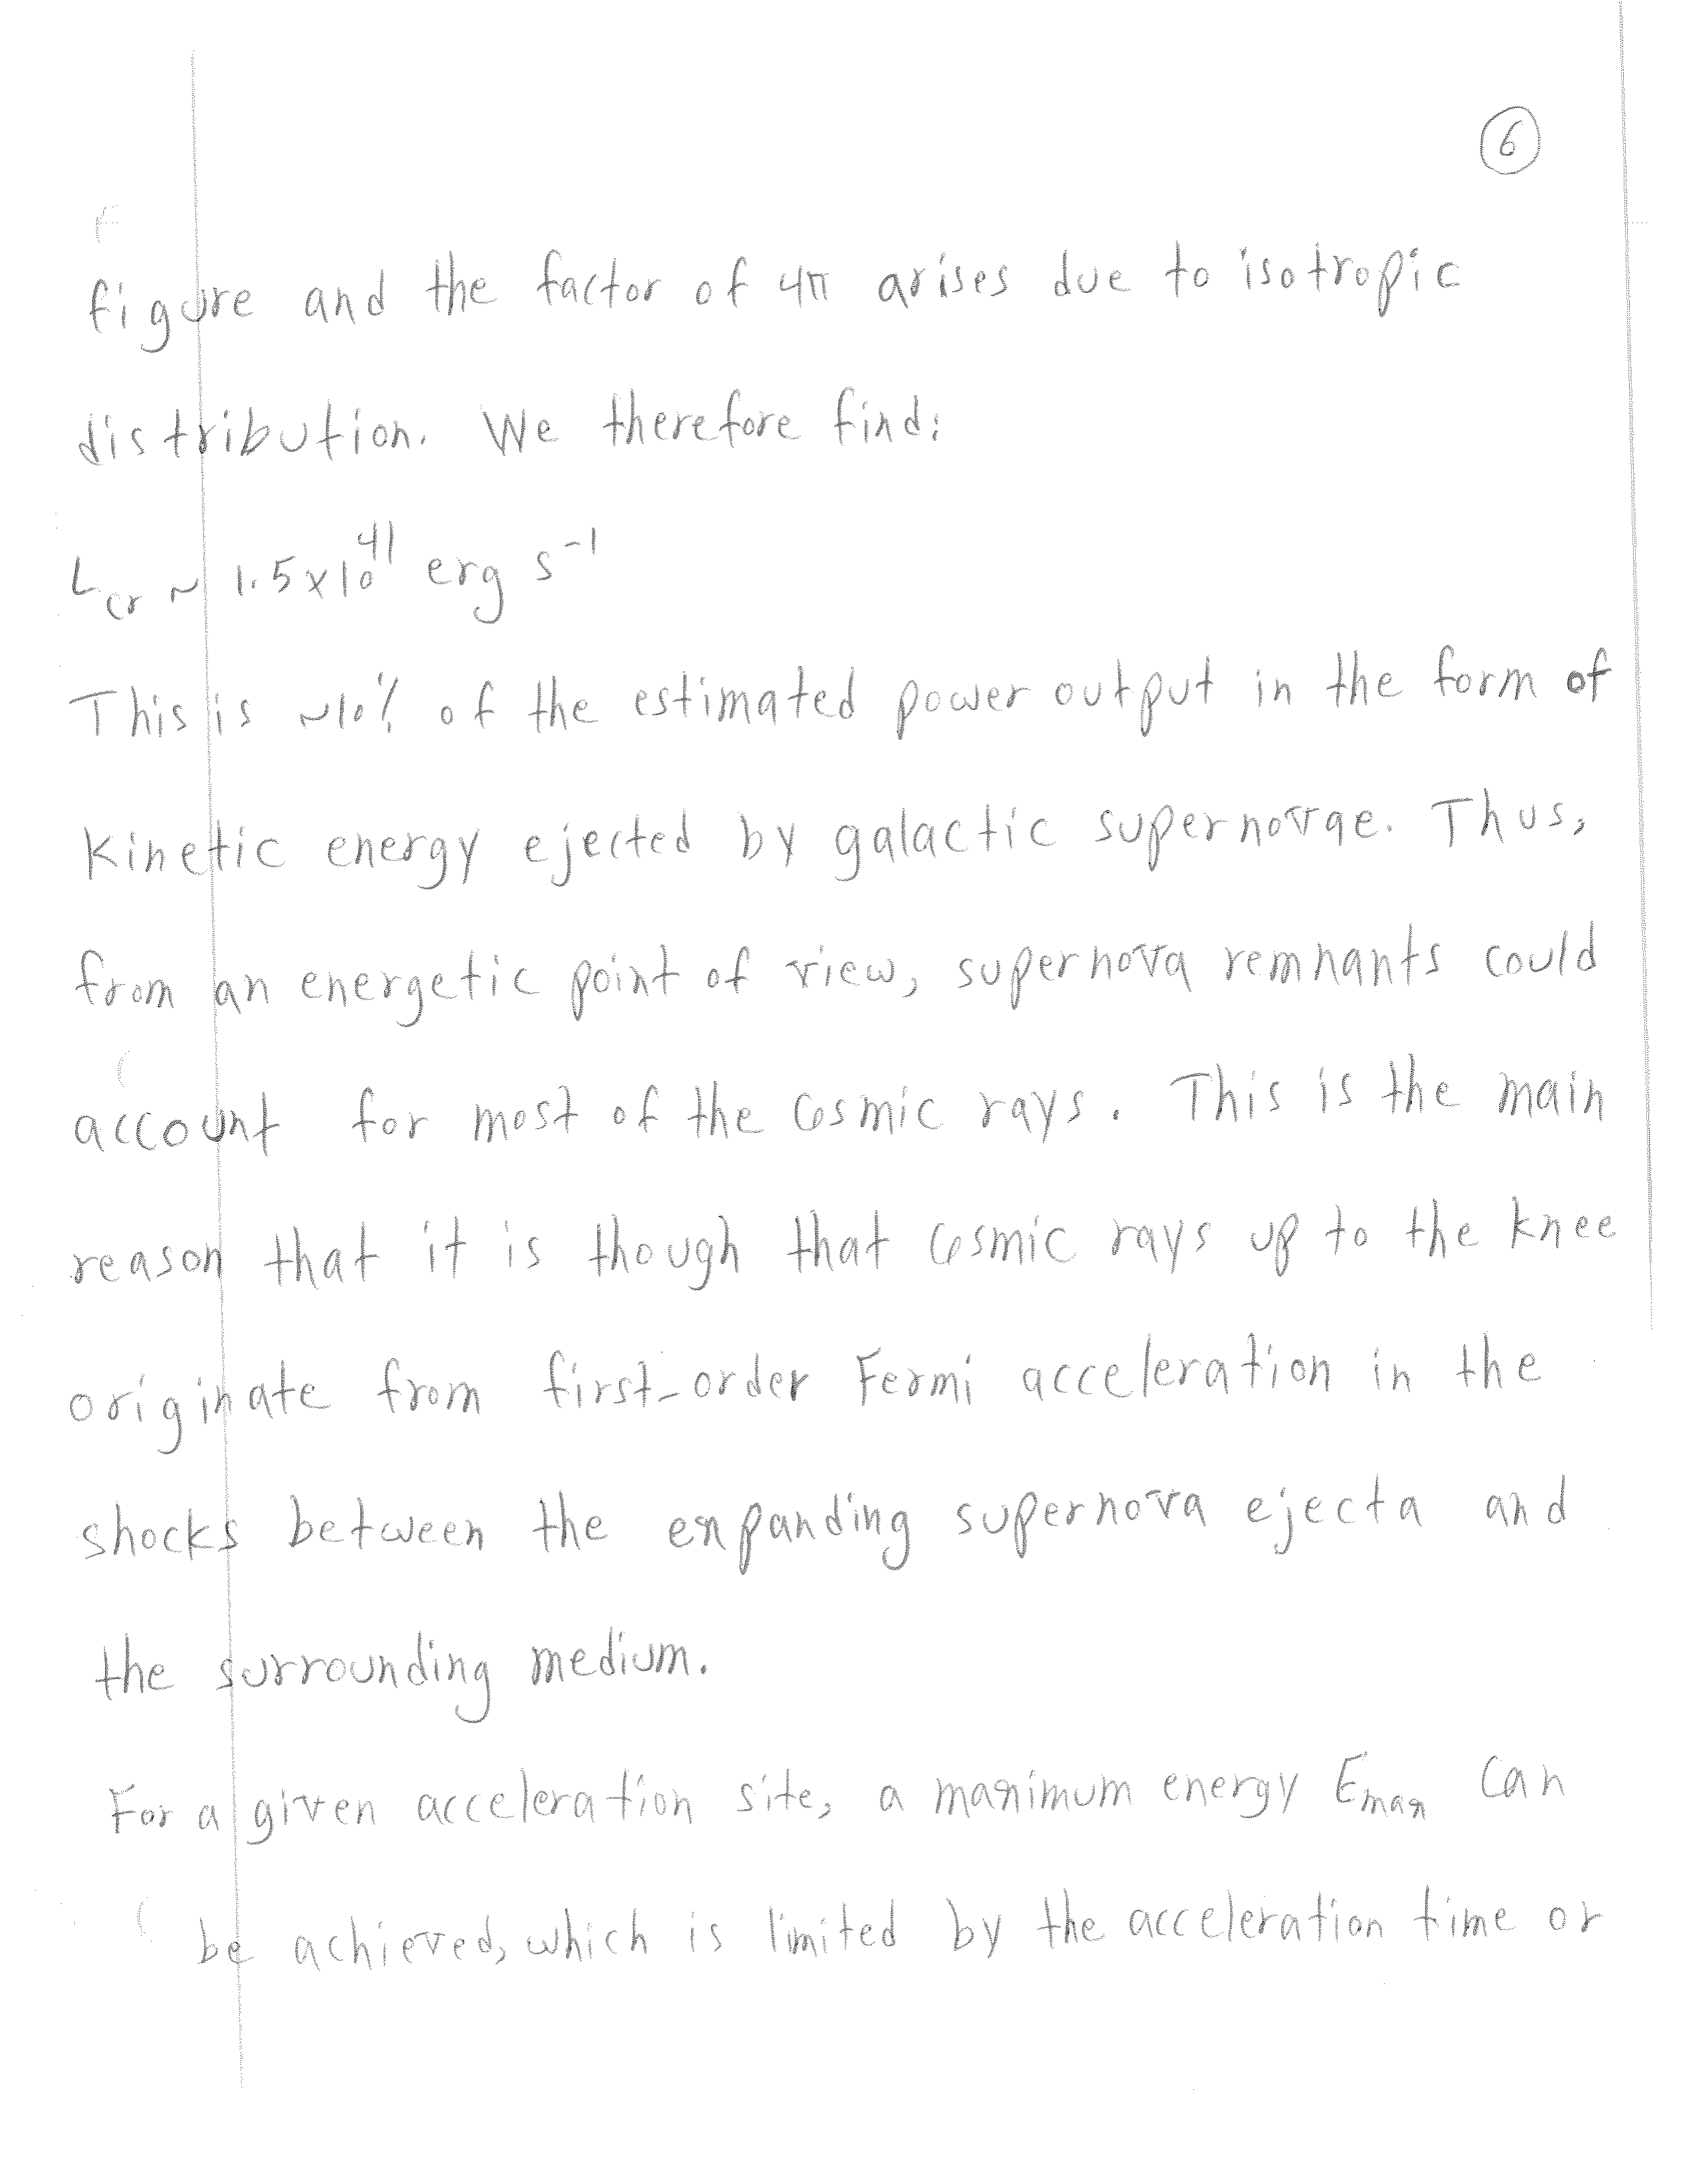 6
figure and the factor of 4π arises due to isotropic
distribution. We therefore find:
L_cr ~ 1.5×10^41 erg s^-1
This is ~10% of the estimated power output in the form of
kinetic energy ejected by galactic supernovae. Thus,
from an energetic point of view, supernova remnants could
account for most of the cosmic rays. This is the main
reason that it is though that cosmic rays up to the knee
originate from first-order Fermi acceleration in the
shocks between the expanding supernova ejecta and
the surrounding medium.
For a given acceleration site, a maximum energy E_max can
be achieved, which is limited by the acceleration time or